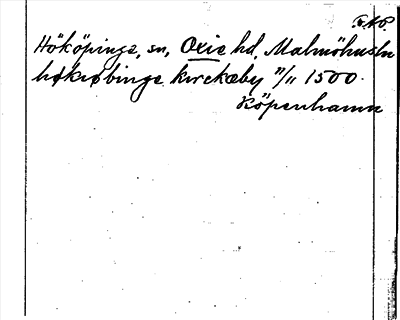 F.A.P.
Hököpinge, sn, Oxie hd, Malmöhus ln
høkiøbinge kirekæby 11/11 1500.
Köpenhamn